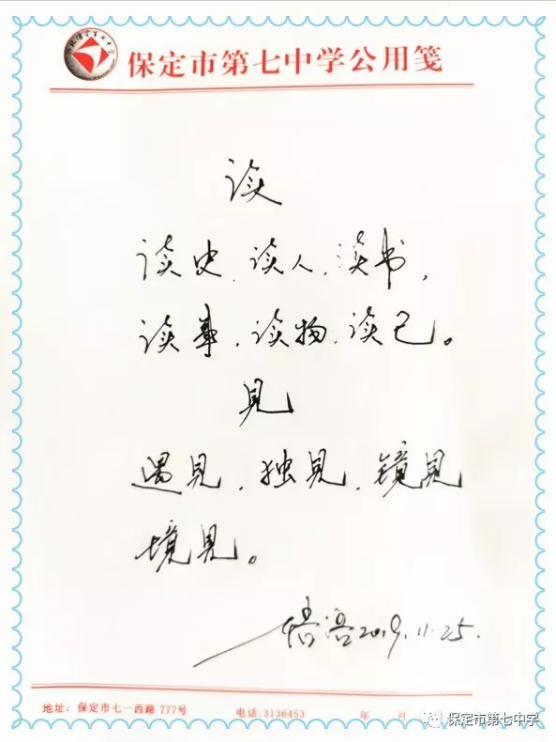 保定市第七中学公用笺
读
读史、读人、读书,
读事、读物、读己。
見
遇見、独見、镜見
境見。
2019.11.25.
地址:保定市七一西路777号 电话:3136453 年 月
保定市第七中学